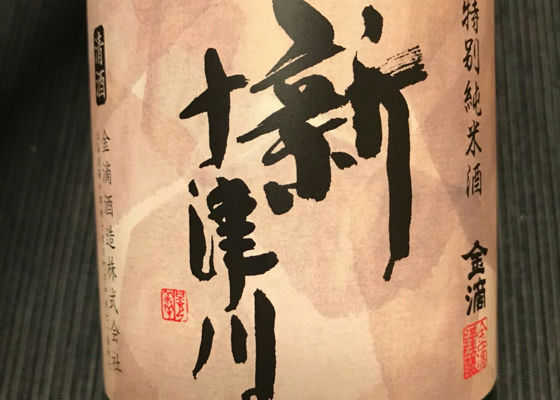 特別純米酒
金滴
新
十津川
清酒
金滴酒造株式会社